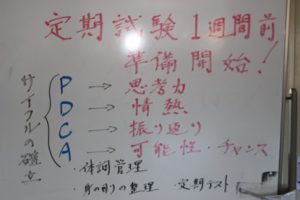 定期試験1週間前
準備開始!
サイクルの確立
P → 思考力
D → 情熱
C → 振り返り
A → 可能性・チャンス
・体調管理
・身の回りの整理 ・定期テスト